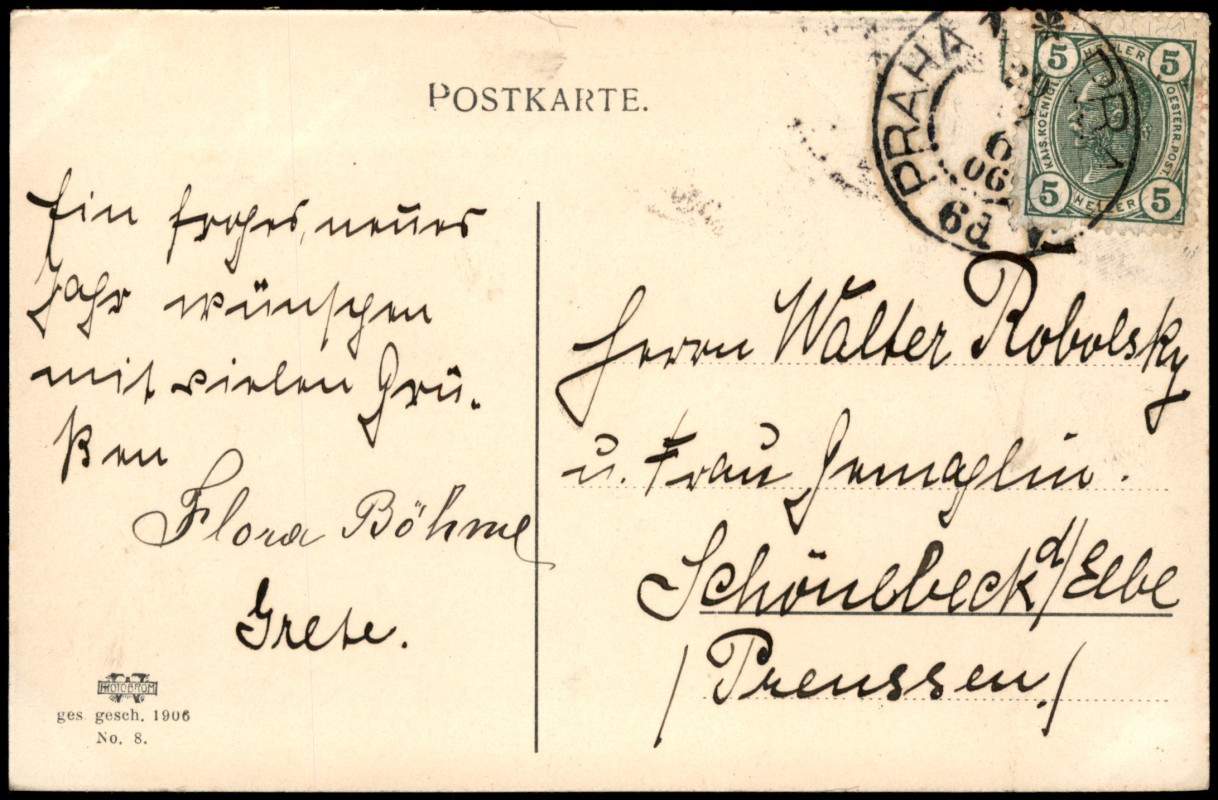 POSTKARTE.
PRAHA 1 * PRAG 1
6
06
6d
5 HELLER 5
KAIS. KOENIGL.
OESTERR. POST
5 HELLER 5
Ein frohes, neues
Jahr wünschen
mit vielen Grü-
ßen
Flora Böhme
Grete.
Herrn Walter Robolsky
u. Frau Gemahlin.
Schönebeck d/Elbe
/Preussen./
ges. gesch. 1906
No. 8.